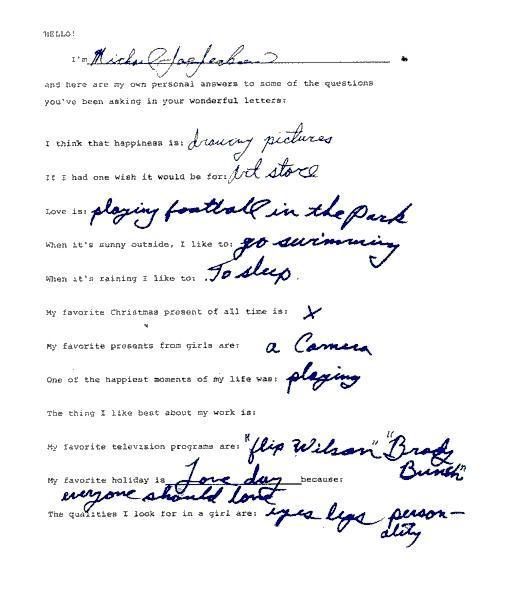 HELLO!
I'm Michael Joe Jackson
and here are my own personal answers to some of the questions
you've been asking in your wonderful letters:
I think that happiness is: drawing pictures
If I had one wish it would be for: Art store
Love is: playing football in the Park
When it's sunny outside, I like to: go swimming
When it's raining I like to: To sleep.
My favorite Christmas present of all time is: X
My favorite presents from girls are: a Camera
One of the happiest moments of my life was: playing
The thing I like best about my work is:
My favorite television programs are: "flip Wilson" "Brady
Bunch"
My favorite holiday is Love day because:
everyone should love
The qualities I look for in a girl are: eyes legs person-
ality